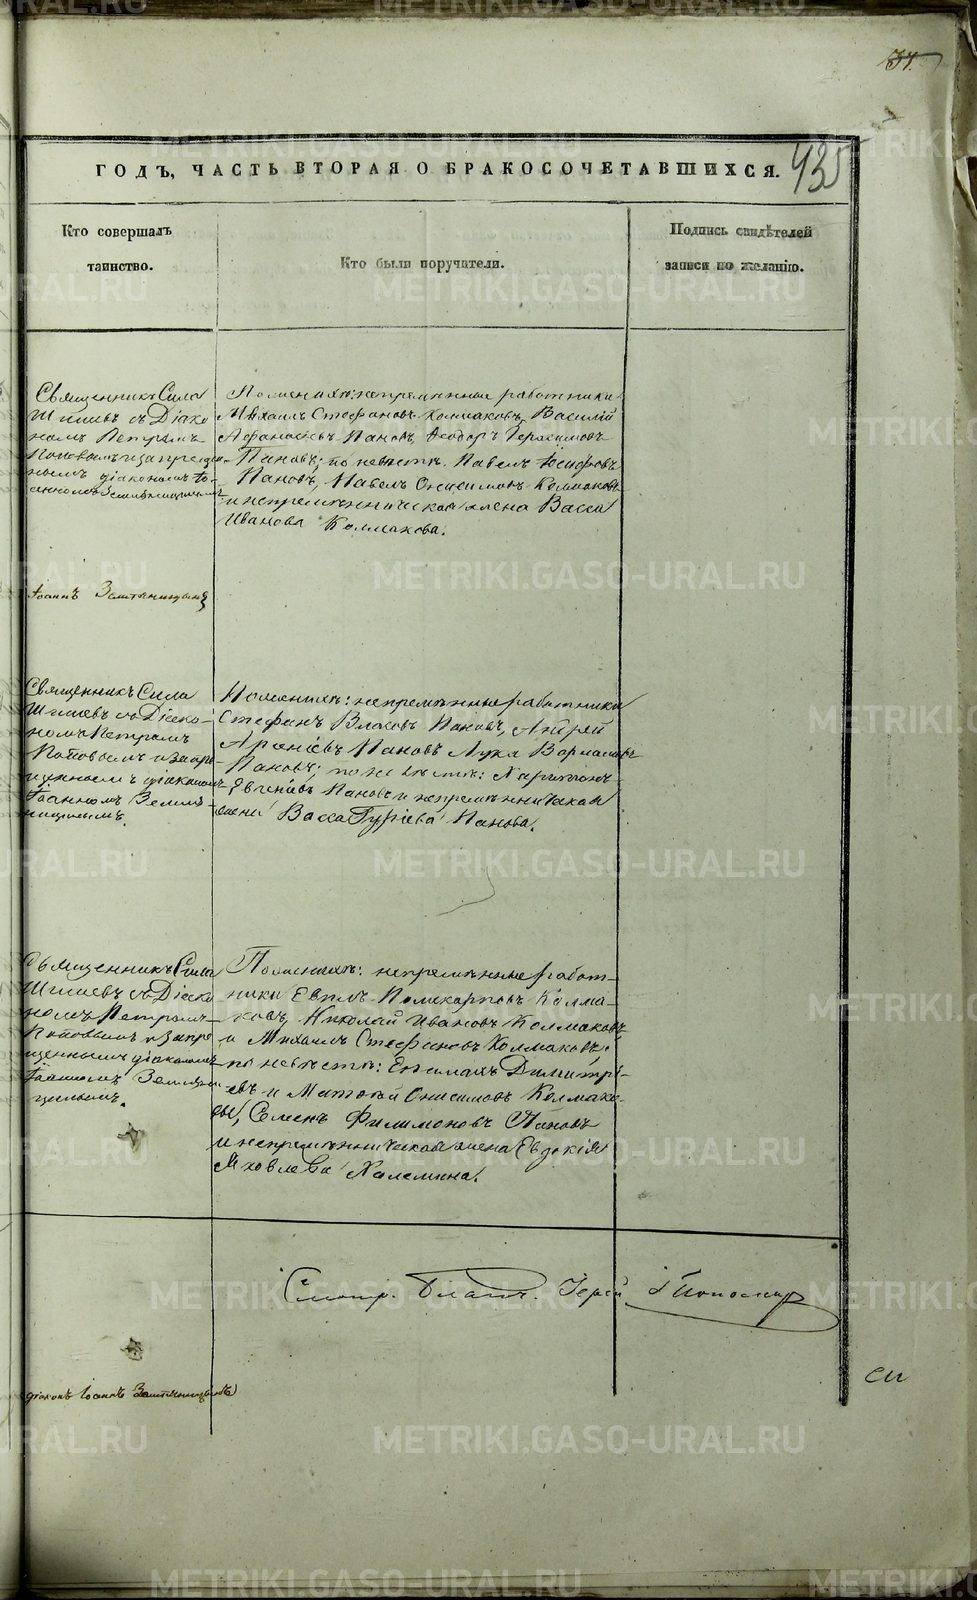 37.
435
ГОДЪ, ЧАСТЬ ВТОРАЯ О БРАКОСОЧЕТАВШИХСЯ.
Кто совершалъ
таинство.
Кто были поручатели.
Подпись свидѣтелей
записи по желанію.
Священникъ Сила
съ Діако
номъ Петромъ
Поповымъ и запрещен
нымъ діакономъ Іо
анномъ
По женихѣ: непремѣнные работники
Михаилъ Стефановъ Колмаковъ, Василій
Афанасьевъ Пановъ, Ѳеодоръ Герасимовъ
Пановъ; по невѣстѣ: Павелъ Іосифовъ
Пановъ, Павелъ Онисимовъ Колмаковъ
и непремѣнническая жена Васса
Иванова Колмакова.
Іоаннъ
Священникъ Сила
съ Діако
номъ Петромъ
Поповымъ и запре
щеннымъ діакономъ
Іоанномъ
По женихѣ: непремѣнные работники
Стефанъ Власовъ Пановъ, Андрей
Пановъ Лука Варламовъ
Пановъ; по невѣстѣ: Харитонъ
Евгеніевъ Пановъ и непремѣнническая
жена Васса Гуріева Панова.
Священникъ Сила
съ Діако
номъ Петромъ
Поповымъ и запре
щеннымъ діакономъ
Іоанномъ
По женихѣ: непремѣнные работ
ники Евѳимъ Поликарповъ Колма
ковъ, Николай Ивановъ Колмаковъ
и Михаилъ Стефановъ Колмаковъ;
по невѣстѣ: Епимахъ Димитрі
евъ и Матвѣй Онисимовъ Колмако
вы, Семенъ Филимоновъ Пановъ
и непремѣнническая жена Евдокія
Яковлева Халемина.
Смотр. Благ. Іерей
діаконъ Іоаннъ
METRIKI.GASO-URAL.RU